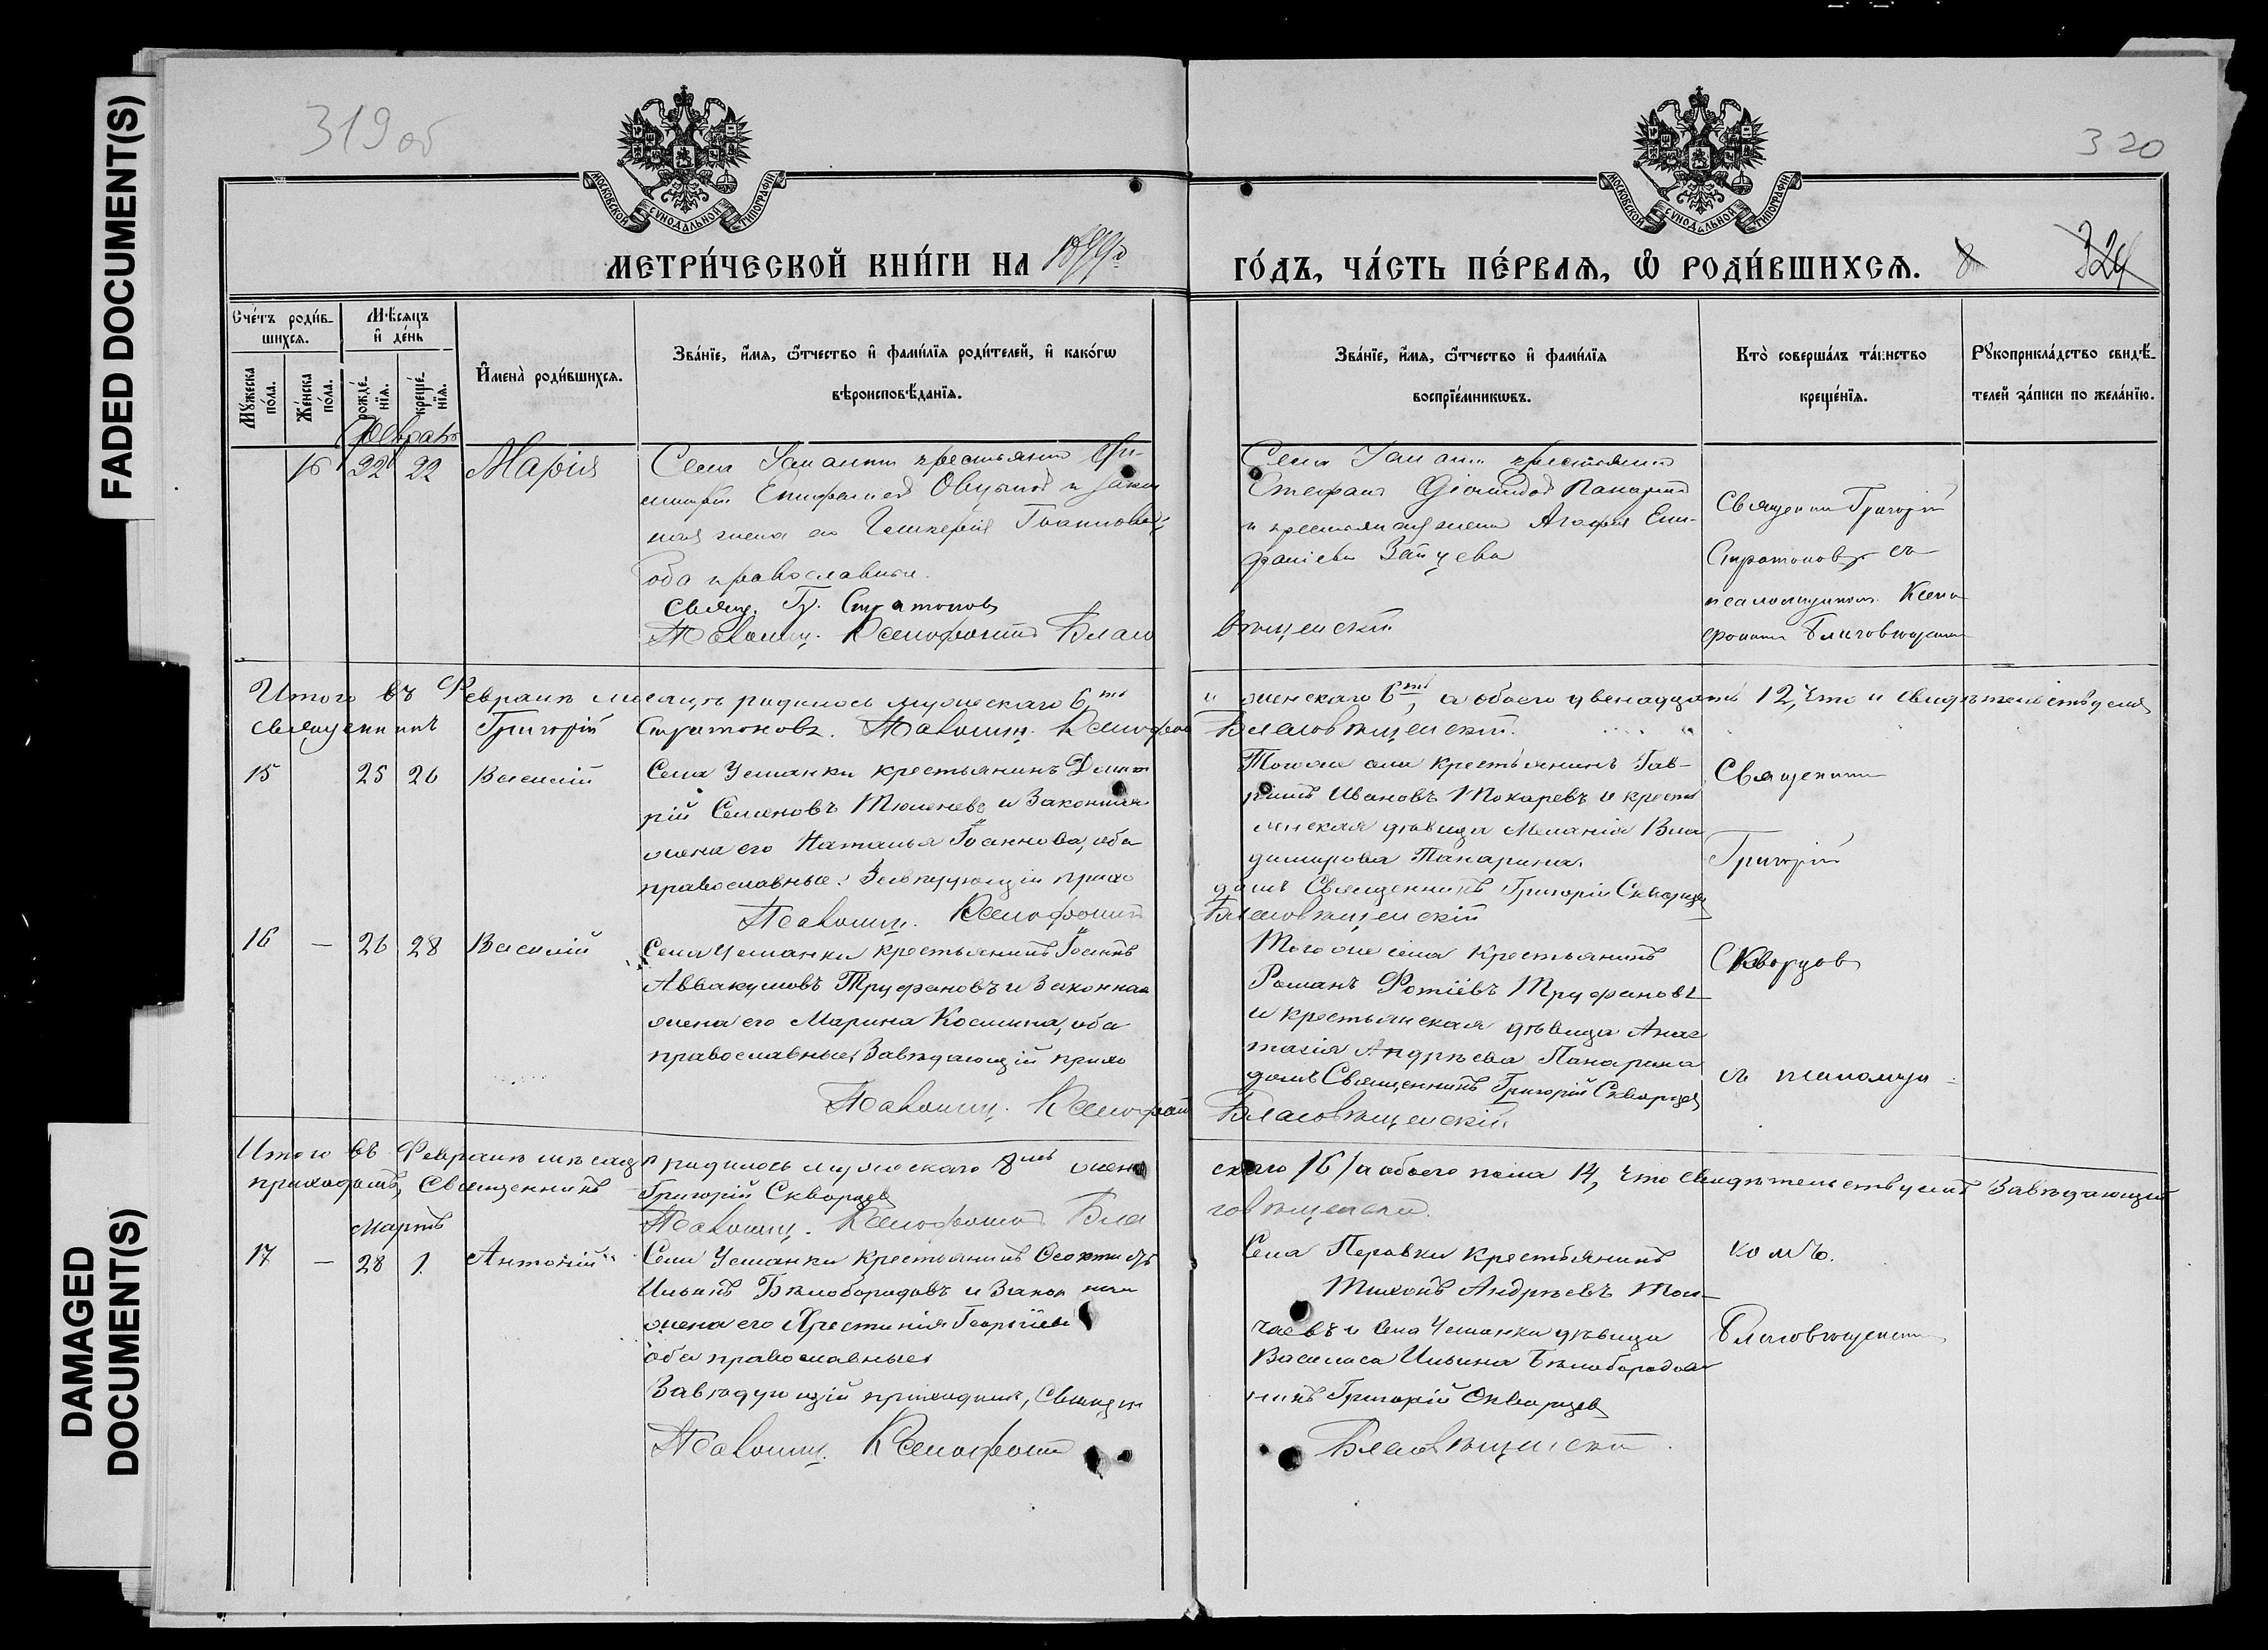 FADED DOCUMENT(S)
DAMAGED DOCUMENT(S)
319 об
320
МОСКОВСКОЙ СУНОДАЛЬНОЙ ТИПОГРАФІИ
МОСКОВСКОЙ СУНОДАЛЬНОЙ ТИПОГРАФІИ
МЕТРИ́ЧЕСКОЙ КНИ́ГИ НА 1899г
ГО́ДЪ, ЧА́СТЬ ПЕ́РВАЯ, Ѡ РОДИ́ВШИХСЯ.
Сче́тъ роди́в-
шихся.
Мꙋ́жеска
по́ла.
Же́нска
по́ла.
Мѣ́сяцъ
и҆ де́нь
рожде́-
нїя.
креще́-
нїя.
И҆мена̀ роди́вшихся.
Зва́нїе, и҆́мя, ѻ҆́тчество и҆ фами́лїя роди́телей, и҆ како́гѡ
вѣроисповѣ́данїя.
Зва́нїе, и҆́мя, ѻ҆́тчество и҆ фами́лїя
воспрїе́мникѡвъ.
Кто̀ соверша́лъ та́инство
креще́нїя.
Рꙋкоприкла́дство свидѣ́-
телей за́писи по жела́нїю.
Февраль
16 22 22 Марія
Села крестьянинъ
жена его Гликерія Іоаннова,
оба православные.
Свящ. Гр. Стратоновъ
Псаломщ. Ксенофонтъ Благо
Села крестьянинъ
Стефанъ Панаринъ
и крестьянская жена Агафія Епи-
фаніева Зайцева
вѣщенскій
Священникъ Григорій
Стратоновъ съ
псаломщикомъ Ксено
фонтомъ Благовѣщенскимъ
Итого въ Февралѣ мѣсяцѣ родилось мужескаго 6ть и женскаго 6ть, а обоего двенадцать 12, что и свидѣтельствуемъ
Священникъ Григорій Стратоновъ. Псаломщ. Ксенофонтъ Благовѣщенскій.
15 25 26 Василій
Села Усманки крестьянинъ Димит
рій Семеновъ Тюленевъ и законная
жена его Наталья Іоаннова, оба
православные. Завѣдующій прихо
Псаломщ. Ксенофонтъ
Того же села крестьянинъ Гав-
ріилъ Ивановъ Токаревъ и кресть
янская дѣвица Меланія Вла
димирова Панарина.
домъ Священникъ Григорій Скворцовъ
Благовѣщенскій
Священникъ
Григорій
16 — 26 28 Василій
Села Усманки крестьянинъ Іоаннъ
Аввакумовъ Труфановъ и законная
жена его Марина Космина, оба
православные, Завѣдающій прихо
Псаломщ. Ксенофонтъ
Того же села крестьянинъ
Романъ Фотіевъ Труфановъ
и крестьянская дѣвица Анас
тасія Андрѣева Панарина
домъ Священникъ Григорій Скворцовъ
Благовѣщенскій.
Скворцовъ
съ псаломщи-
Итого въ Февралѣ мѣсяцѣ родилось мужескаго 8мь женскаго /6/ а обоего пола 14, что свидѣтельствуемъ Завѣдающій
приходомъ, Священникъ Григорій Скворцовъ
Псаломщ. Ксенофонтъ Благовѣщенскій.
Мартъ
17 — 28 1. Антоній
Села Усманки крестьянинъ Ѳеоктистъ
Ильинъ Бѣлобородовъ и законная
жена его Христинія Георгіева
оба православные
Завѣдующій приходомъ, Священ
Псаломщ. Ксенофонтъ
Села Перовки крестьянинъ
Тихонъ Андрѣевъ Тол-
чаевъ и села Усманки дѣвица
Василиса Ильина Бѣлобородова
никъ Григорій Скворцовъ
Благовѣщенскій.
комъ.
Благовѣщенскимъ